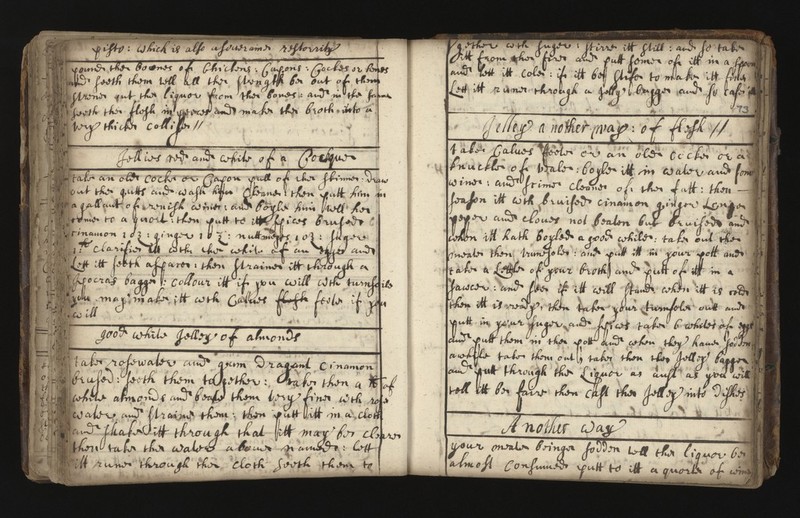 pisto: which is also a soveraine restority
pound the bones of Chickens: Capons: Cockes or hens
and seeth them till all the strength be out of them
straine out the liquor from the bones: and in the same
seeth the flesh in peeces and make the broth into a
very thicke collise //
Jellies red and white of a Cocke
take an olde cocke or Capon pull of the skinne: draw
out the gutts and wash him cleane: then putt him in
a gallant of renish wine: and boyle him till hee
come to a quort: then put to itt spices brused
cinamon 1 oz: ginger 1 oz: nuttmegs 1 oz: suger
clarifie itt with the white of an egge and
Lett itt seeth apace: then straine itt through a
Ipocras bagge: collour itt if you will with turnsole
you may make itt with Calves feete if you
will
good white Jelley of almonds
take rosewater and gum dragant cinamon
brused: seeth them together: take then a of
white almonds and beate them very fine with rose
water and straine them: then putt itt in a cloth
and shake itt through that itt may be cleare
then take the water above named: lett
itt runne through the cloth seeth them to
gether with suger: stirre itt still: and so take
itt from the fire and putt some of itt in a spoon
and lett itt cole: if itt be stife to make itt fine
Lett itt runne through a Jelly bagge and so
73
Jelley a nother way: of flesh //
take Calves feete or an olde cocke or a
knuckle of veale: boyle itt in water and some
wine: and scime cleane of the fatt: then
season itt with bruised cinamon ginger Longe
peper and cloves not beaten but bruised and
when itt hath boyled a good while: take out the
meate then turnsole: and putt itt in your pott and
take a Little of your broth and putt of itt in a
sawcer: and see if itt will stand when itt is cold
then itt is ready: then take your turnsole outt and
putt in your suger and spices take 6 whites of eggs
and putt them in the pott and when they have sodden
a while take them out, take then the Jelley bagge
and putt through the Liquor as much as you will
till itt be faire then cast the Jelley into dishes
A nother way
your meate beinge sodden till the liquor be
almost consumed putt to itt a quorte of wine